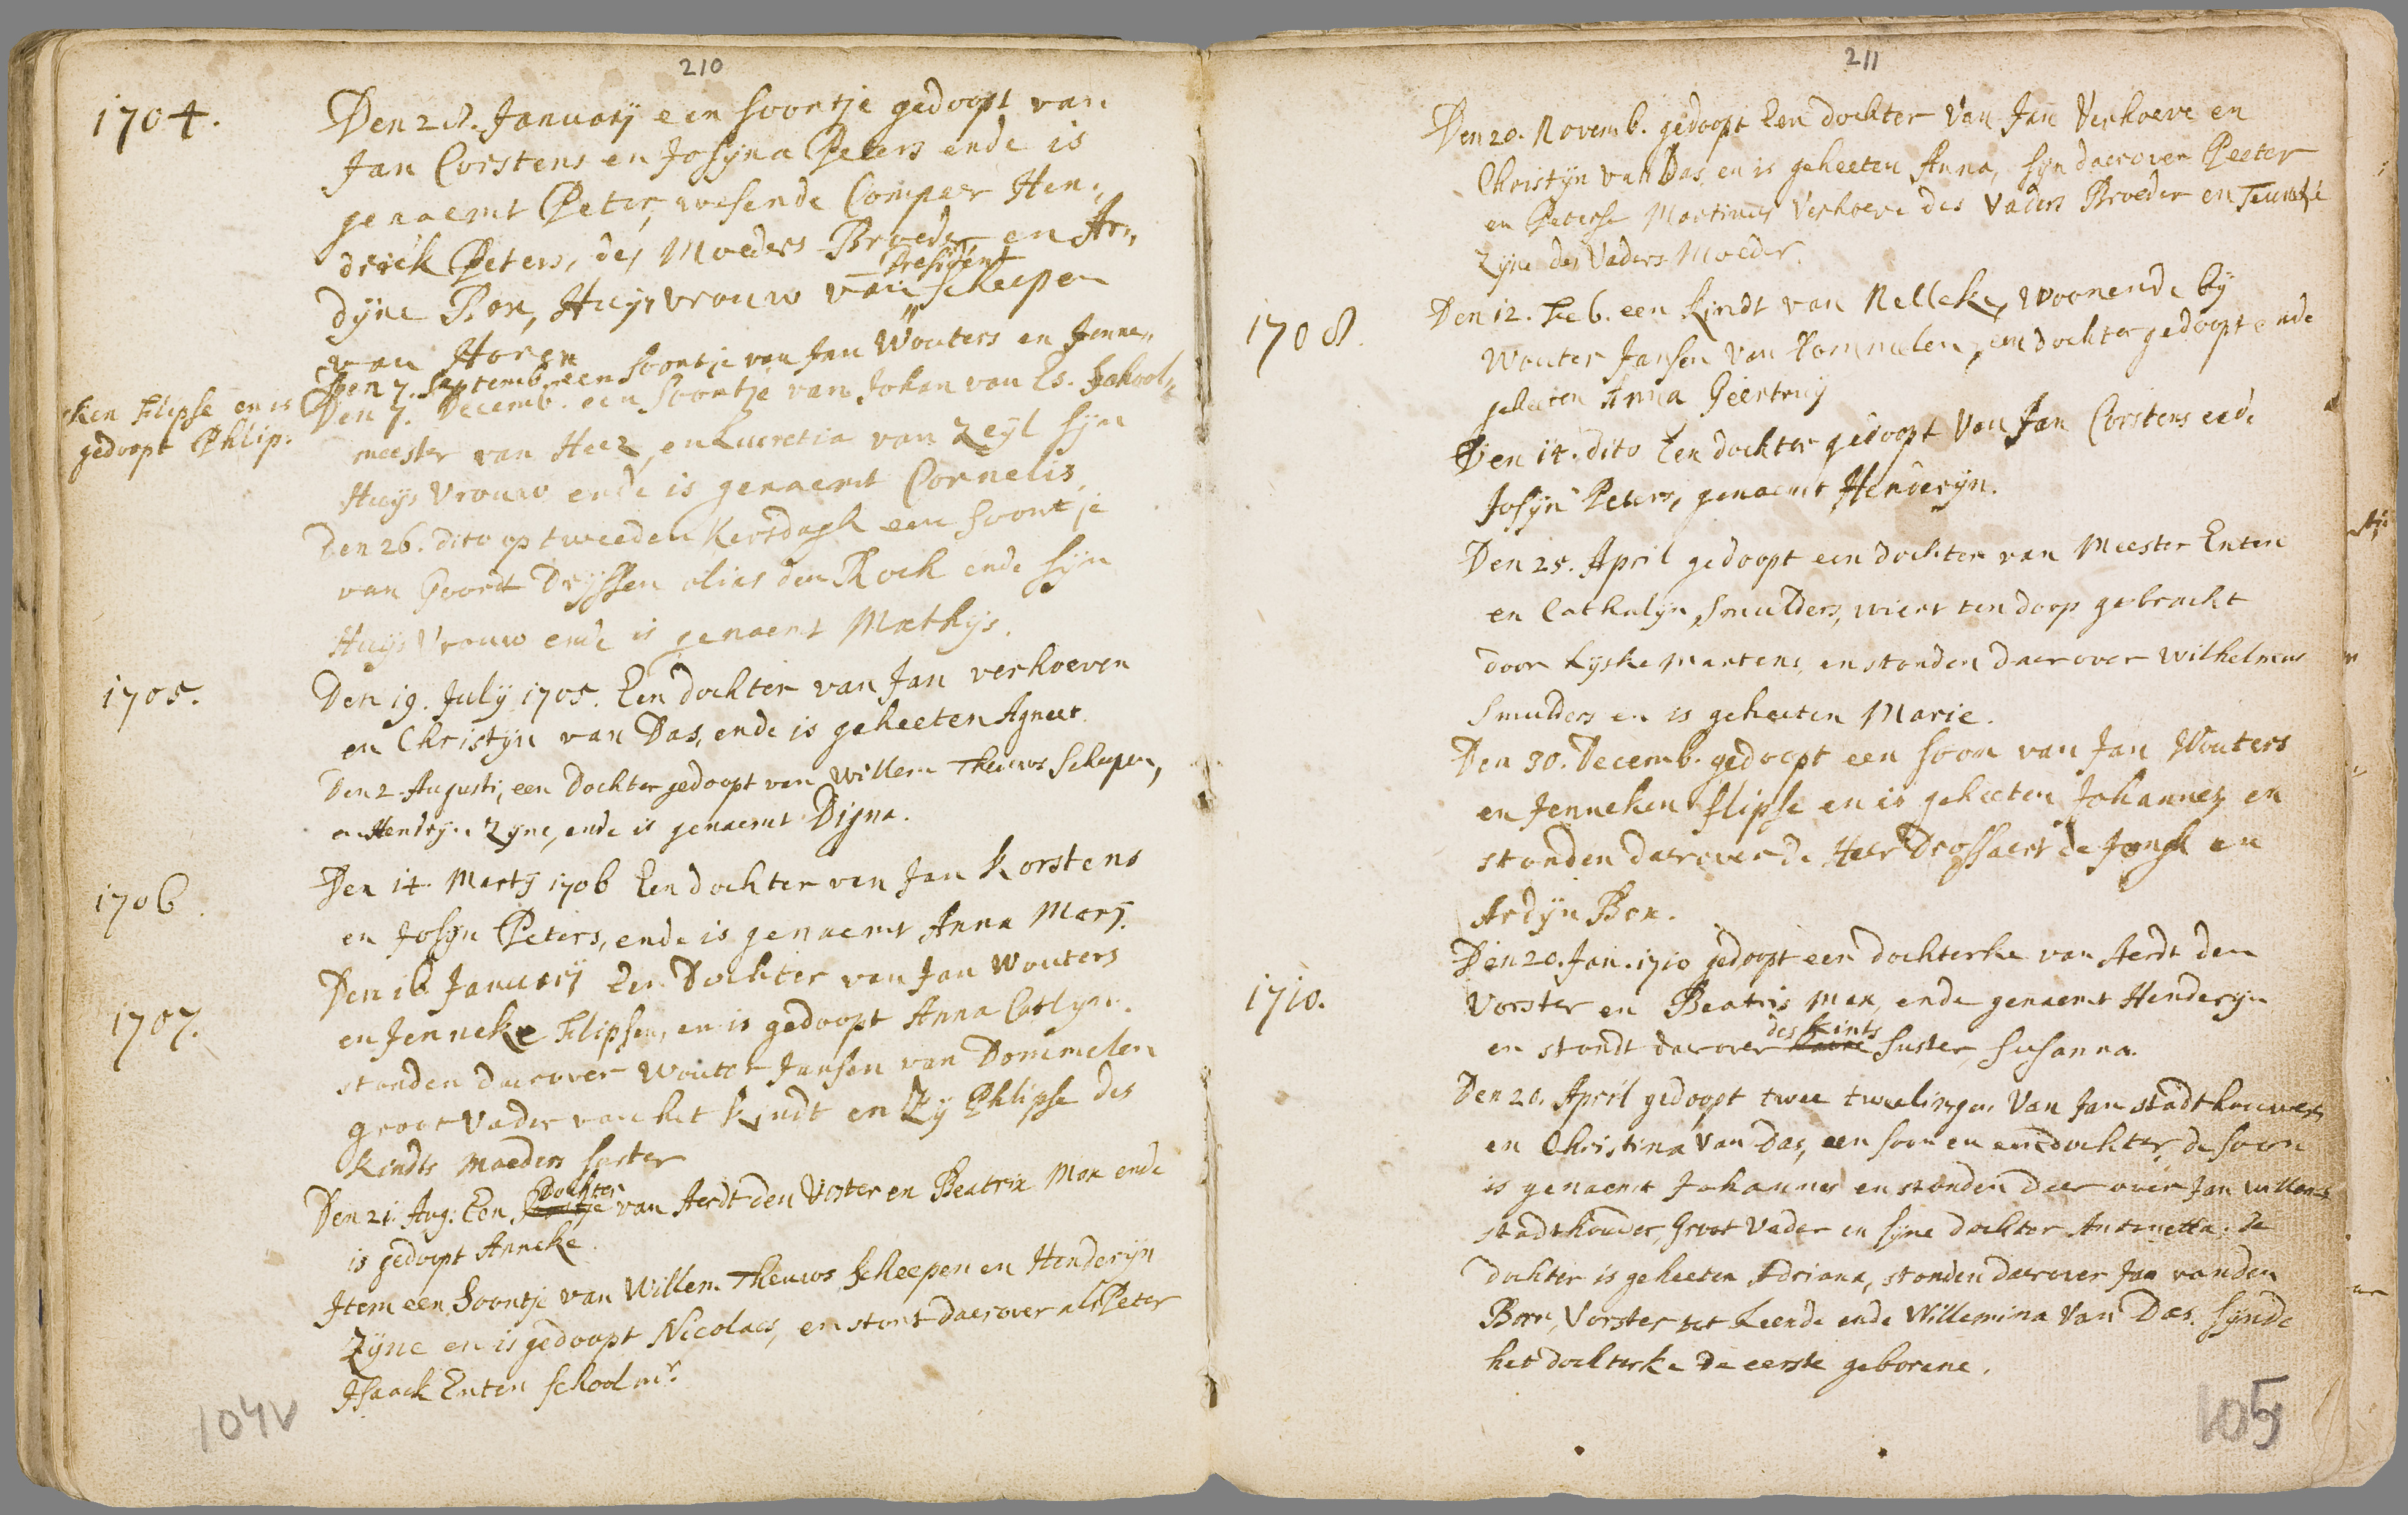 210
1704.
Den 28. January een soontje gedoopt van
Jan Corstens en Josyna Peters ende is
genaemt Peter, wesende Compeer Hen,,
drick Peters, des Moeders Broeder en Ar,,
President
dijne Bon, Huijsvrouw van Scheepen
van Horen
Den 7. Septemb. een soontje van Jan Wouters en Jenne,,
ken Flipse en is
gedoopt Phlip.
Den 7. Decemb. een Soontje van Johan van Es. School,,
meester van Heez, en Lucretia van Zeijl sijn
Huijs Vrouw ende is genaemt Cornelis,
Den 26. dito op tweeden Kersdagh een soontje
van Goordt Dryssen alias den Rock ende sijn
Huijs Vrouw ende is genaemt Mathijs.
1705.
Den 19. July 1705. Een dochter van Jan verhoeven
en Christijn van Das, ende is geheeten Agneet.
Den 2. Augusti, een Dochter gedoopt van Willem Theuws Schepen,
en Hendryn Zyne, ende is genaemt Digna.
1706.
Den 14. Martij 1706 Een dochter van Jan Korstens
en Josyn Peters, ende is genaemt Anna Marij.
1707.
Den 16 January Een Dochter van Jan Wouters
en Jenneke Flipsen, en is gedoopt Anna Catlyn.
stonden daerover Wouter Jansen van Dommelen
groot Vader van het Kindt en Zy Phlipse des
Kindts Moeders suster
Dochter
Den 21. Aug. Een soontje van Aerdt den Vorster en Beatrix Max ende
is gedoopt Anneke.
Item een Soontje van Willem Theuws Scheepen en Henderijn
Zijne en is gedoopt Nicolaes, en stont daerover als Peter
Isaack Enten Schoolmr.
104v
211
Den 20. Novemb. gedoopt Een dochter Van Jan Verhoeve en
Christijn van Das, en is geheeten Anna, sijn daerover Peeter
en Peterse Martinus Verhoeve des Vaders Broeder en Teuntje
Zijne des Vaders Moeder.
1708.
Den 12. Feb. een Kindt van Nelleke, woonende by
Wouter Jansen van Dommelen, een dochter gedoopt ende
geheeten Anna Geertruy
Den 14. dito Een dochter gedoopt Van Jan Corstens ende
Josijn Peters, genaemt Henderijn.
Den 25. April gedoopt een dochter van Meester Enten
en Cathalijn Smulders, wiert ten doop gebracht
door Lyske Martens, en stonden daerover Wilhelmus
Smulders en is geheeten Marie.
Den 30. Decemb. gedoopt een soon van Jan Wouters
en Jenneken Flipse en is geheeten Johannes en
stonden daerover de Heer Drossaert de Jongh en
Ardijn Bon.
1710.
Den 20. Jan. 1710 gedoopt een dochterke van Aerdt den
Vorster en Beatris Max, ende genaemt Henderijn
des kints
en stondt daerover suster, susanna.
Den 20. April gedoopt twee tweelingen Van Jan stadthouwers
en Christina Van Das, een soon en een dochter, de soon
is genaemt Johannes en stonden daer over Jan Willems
stadthouder, Groot Vader en sijne dochter Antonetta. de
dochter is geheeten Adriana, stonden daerover Jan vanden
Born, Vorster tot Leende ende Willemina Van Das. Synde
het dochterke de eerste geborene.
105